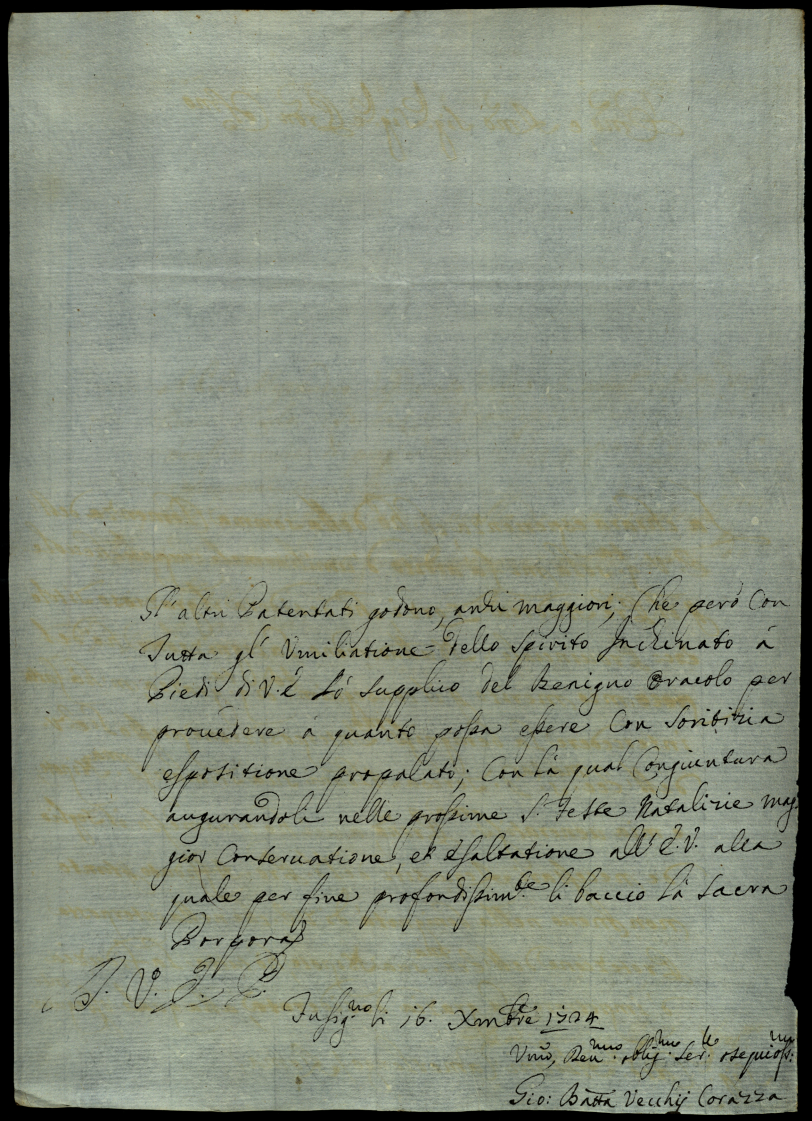 gl'altri Patentati godono, anzi maggiori; che però Con
Tutta gl' Vmiliatione dello spirito Inchinato á
Piedi di V. E. Lò supplico del Benigno Oracolo per
prouédere á quanto possa essere Con
espositione propalato; Con lá qual Congiuntura
augurandoli nelle prossime S. Feste Natalizie mag
gior Conseruatione, et Esaltatione all' E. V. alla
quale per fine profondissim.te li baccio lá Sacra
Porpora
D. V. E.
Fusig.no li 16. Xmbre 1724
Vmo, Deu.mo oblig.mo Ser.re osequioss.mo
Gio: Batta Vecchij Corazza